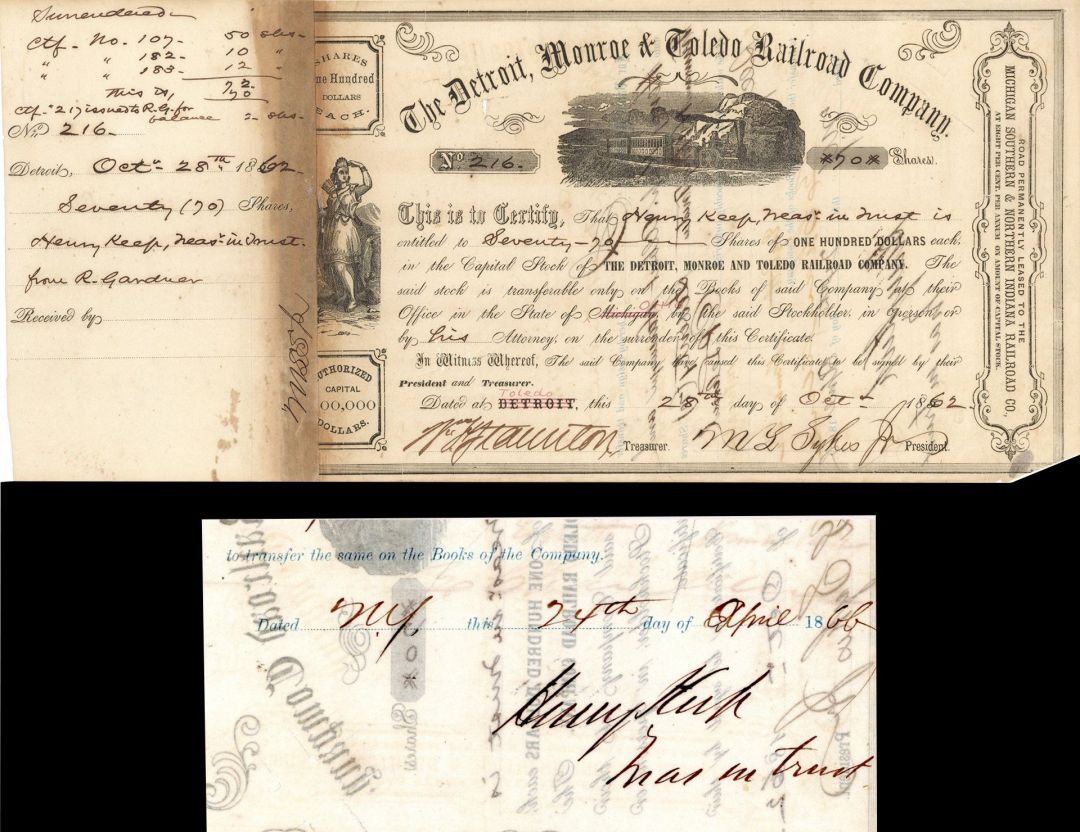 Surrendered
Ctf. No. 107- 50 shs-
" " 182- 10 "
" " 183- 12 "
72
this is, 70
Ctf. 217 issued to R.G. for
balance 2 shs.
No. 216.
Detroit, Oct. 28th 1862.
Seventy (70) Shares,
Henry Keep, Treas. in trust.
from R. Gardner
Received by
SHARES
One Hundred
DOLLARS
EACH.
AUTHORIZED
CAPITAL
00,000
DOLLARS.
The Detroit, Monroe & Toledo Railroad Company.
No. 216. *70* Shares.
This is to Certify, That Henry Keep, Treas. in trust is
entitled to Seventy-70 Shares of ONE HUNDRED DOLLARS each,
in the Capital Stock of THE DETROIT, MONROE AND TOLEDO RAILROAD COMPANY. The
said stock is transferable only on the Books of said Company at their
Office in the State of Michigan, by the said Stockholder, in person or
by his Attorney, on the surrender of this Certificate.
In Witness Whereof, The said Company have caused this Certificate to be signed by their
President and Treasurer.
Toledo
Dated at DETROIT, this 28th day of Oct. 1862.
Treasurer. M L Sykes Jr President.
ROAD PERMANENTLY LEASED TO THE
MICHIGAN SOUTHERN & NORTHERN INDIANA RAILROAD CO.,
AT EIGHT PER CENT. PER ANNUM ON AMOUNT OF CAPITAL STOCK.
to transfer the same on the Books of the Company.
Dated N.Y. this 24th day of April 1866
Henry Keep
Treas in trust